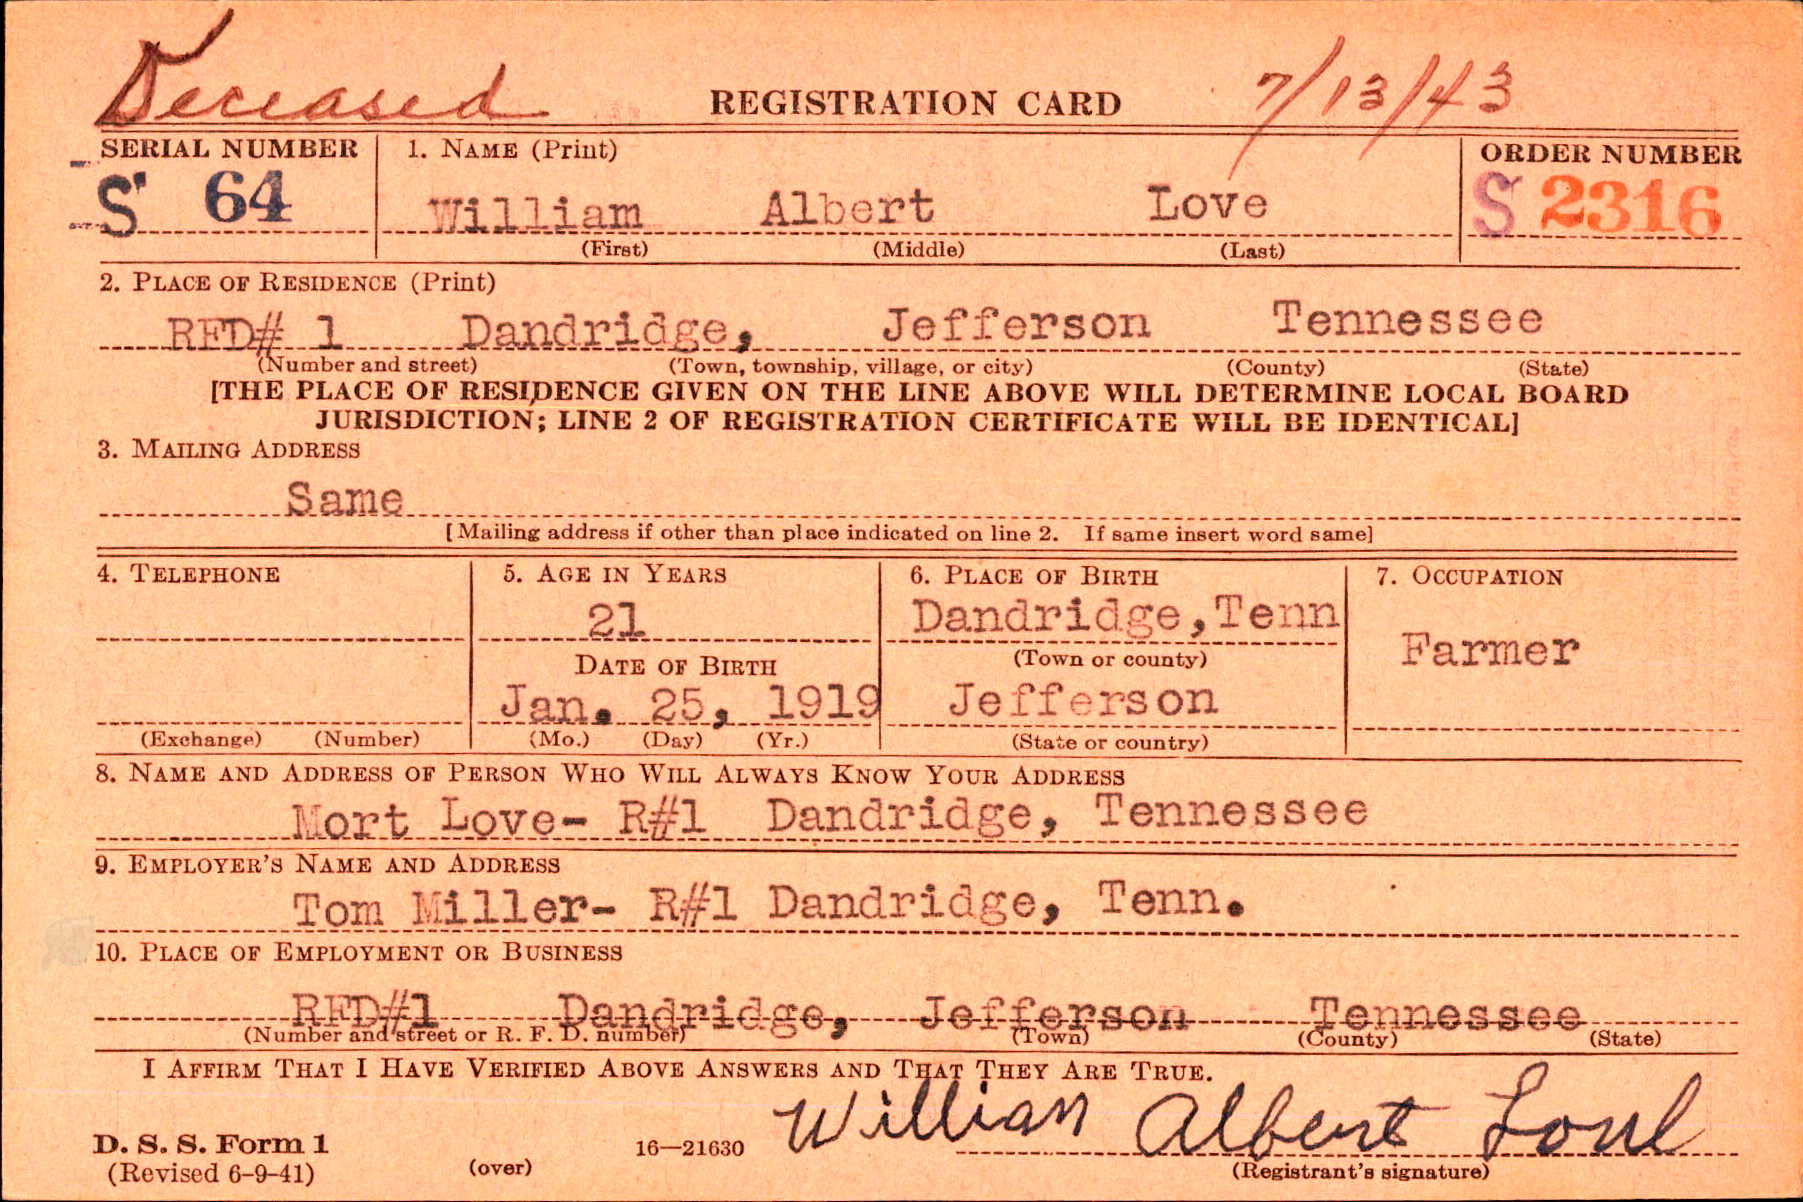 Deceased REGISTRATION CARD 7/13/43
SERIAL NUMBER 1. NAME (Print) ORDER NUMBER
S 64 William Albert Love S 2316
(First) (Middle) (Last)
2. PLACE OF RESIDENCE (Print)
RFD# 1 Dandridge, Jefferson Tennessee
(Number and street) (Town, township, village, or city) (County) (State)
[THE PLACE OF RESIDENCE GIVEN ON THE LINE ABOVE WILL DETERMINE LOCAL BOARD
JURISDICTION; LINE 2 OF REGISTRATION CERTIFICATE WILL BE IDENTICAL]
3. MAILING ADDRESS
Same
[Mailing address if other than place indicated on line 2. If same insert word same]
4. TELEPHONE 5. AGE IN YEARS 6. PLACE OF BIRTH 7. OCCUPATION
21 Dandridge,Tenn
DATE OF BIRTH (Town or county) Farmer
Jan. 25, 1919 Jefferson
(Exchange) (Number) (Mo.) (Day) (Yr.) (State or country)
8. NAME AND ADDRESS OF PERSON WHO WILL ALWAYS KNOW YOUR ADDRESS
Mort Love- R#1 Dandridge, Tennessee
9. EMPLOYER'S NAME AND ADDRESS
Tom Miller- R#1 Dandridge, Tenn.
10. PLACE OF EMPLOYMENT OR BUSINESS
RFD#1 Dandridge, Jefferson Tennessee
(Number and street or R. F. D. number) (Town) (County) (State)
I AFFIRM THAT I HAVE VERIFIED ABOVE ANSWERS AND THAT THEY ARE TRUE.
William Albert Love
D. S. S. Form 1 16—21630
(Revised 6-9-41) (over) (Registrant's signature)